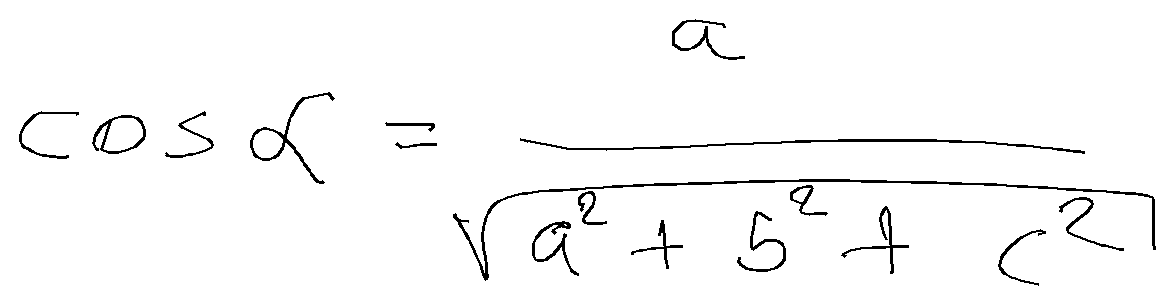 cos α = \frac{a}{\sqrt{a^2 + 5^2 + c^2}}